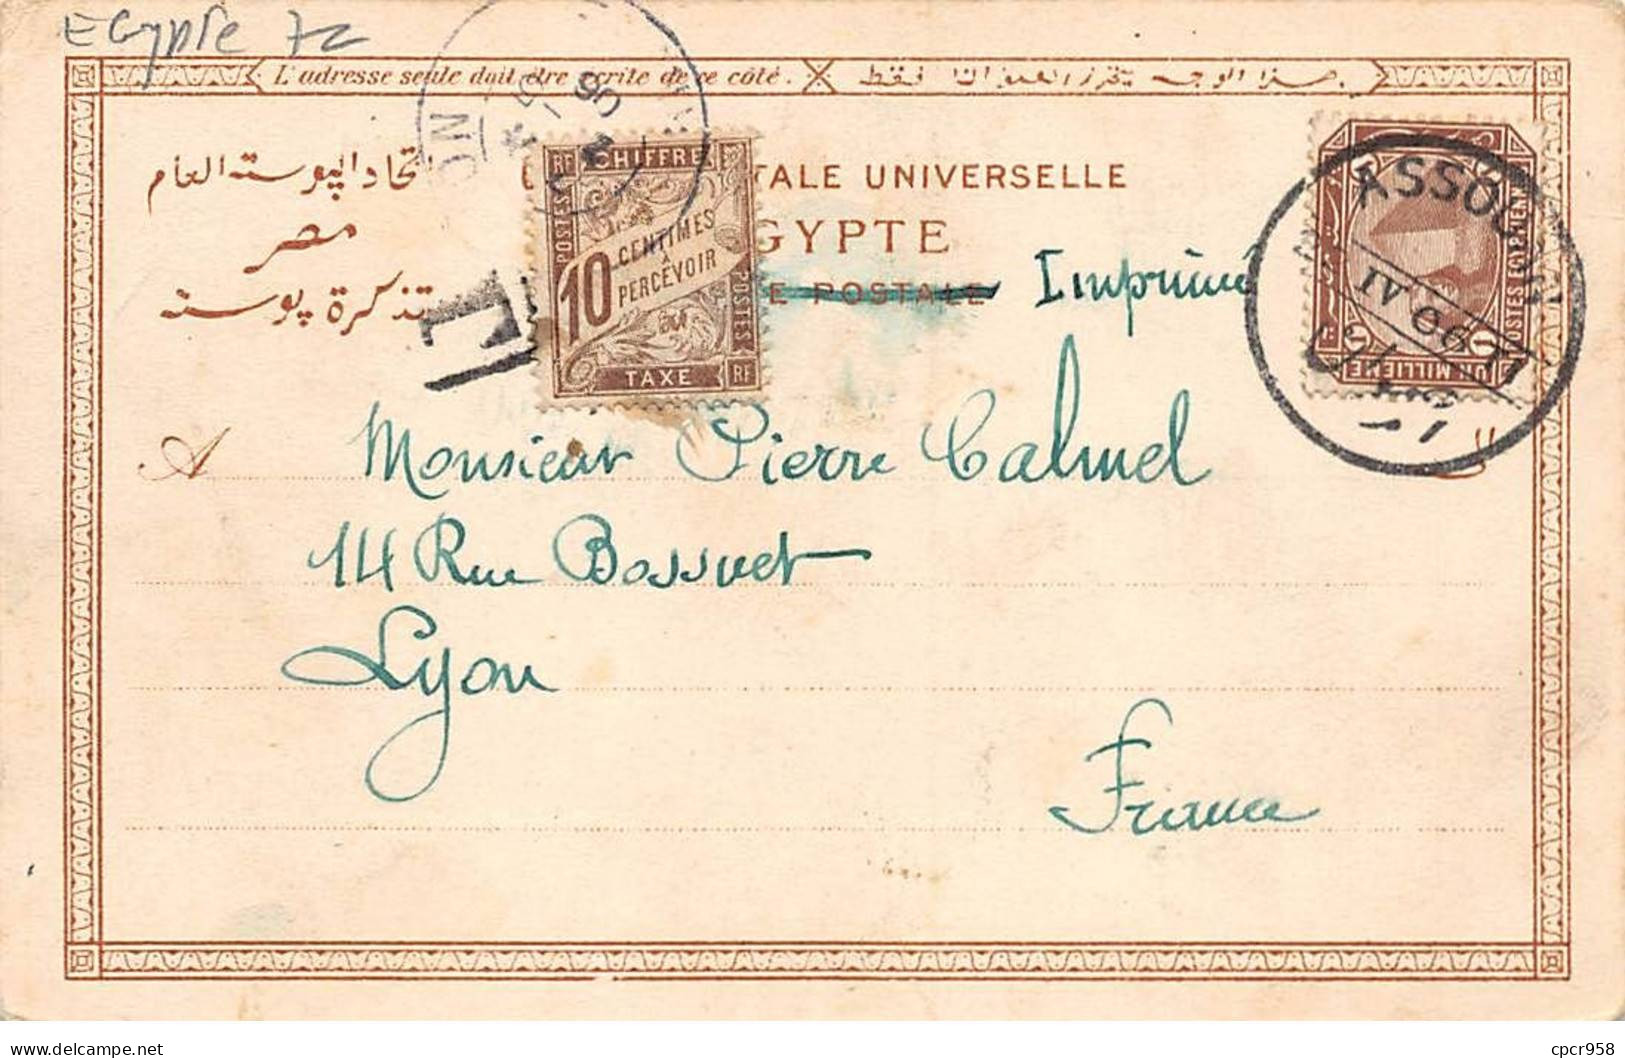 Egypte 72
L'adresse seule doit être écrite de ce côté.
هذا الوجه يتحرر العنوان فقط
اتحاد البوسته العام
TALE UNIVERSELLE
مصر
GYPTE
تذكرة بوسته
E POSTALE
Imprimé
RF CHIFFRE
POSTES
10 CENTIMES
À
PERCEVOIR
POSTES
TAXE RF
T
ON
06
ASSOUAN
IV 06
POSTES EGYPTIENNES
1 UN MILLIEME 1
A Monsieur Pierre Calmel
14 Rue Bossuet
Lyon
France
delcampe.net
cpcr958